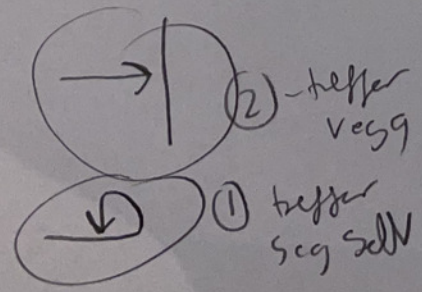 ② - treffer
vegg
① treffer
seg selv